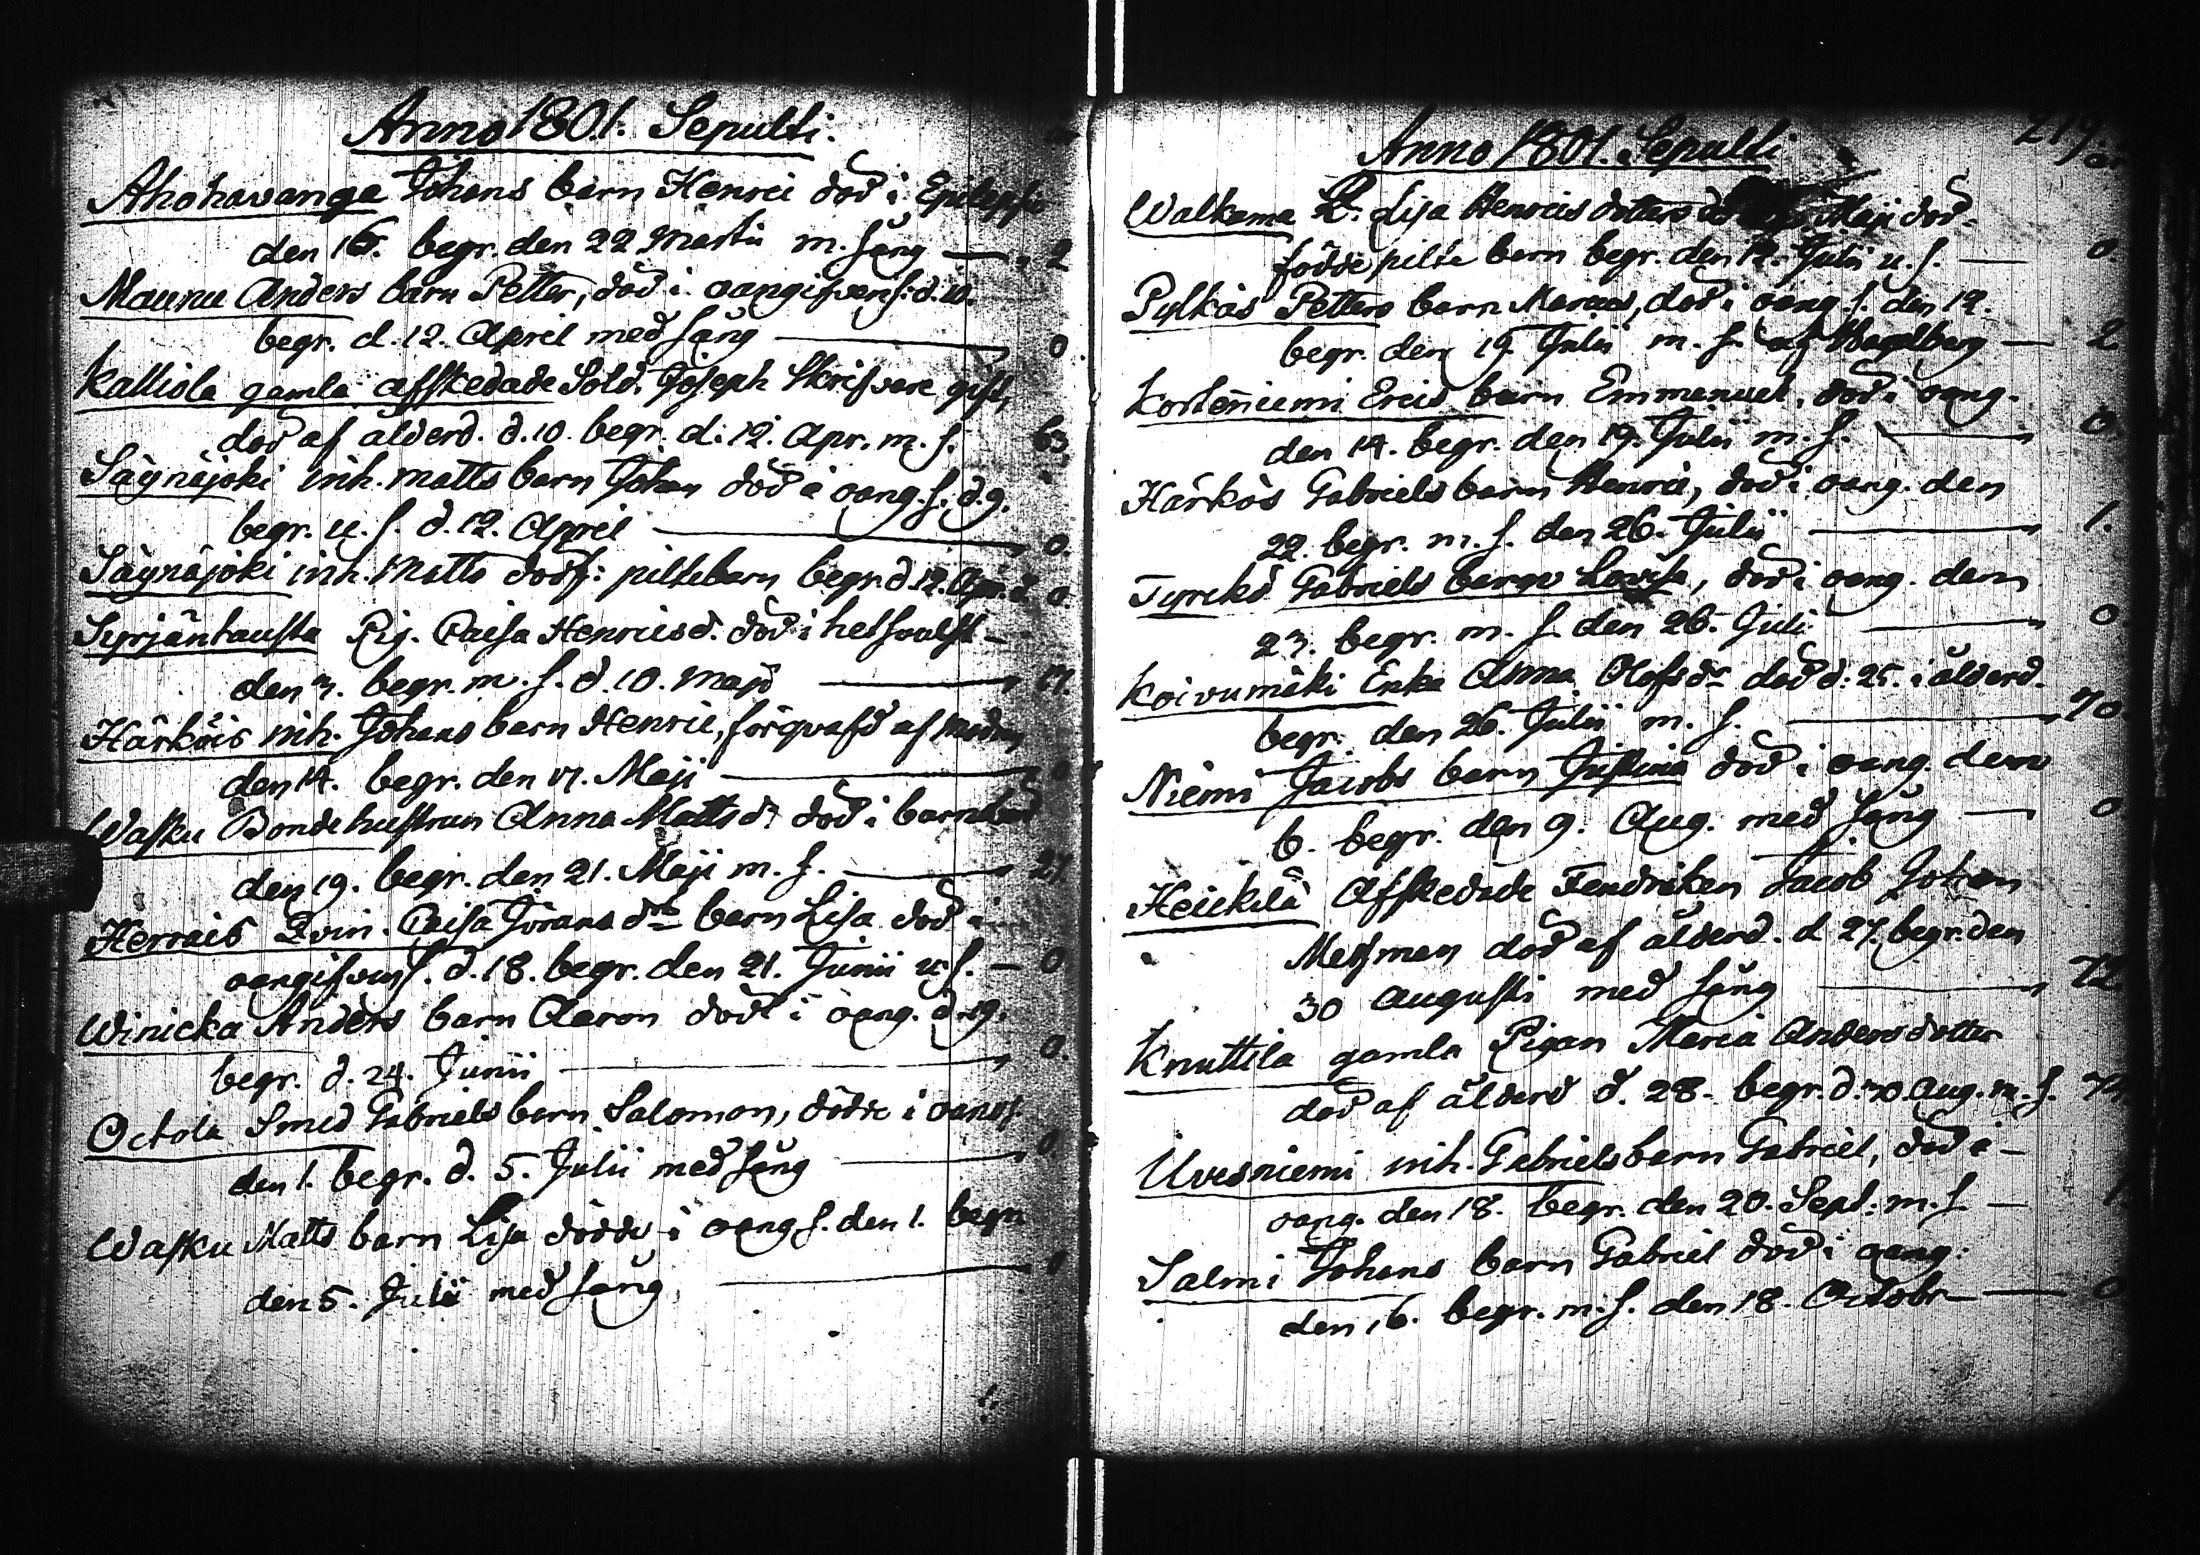 Anno 1801. Sepulti.
Ahohavanga Johans barn Henric död i Epilepsie
den 16. begr. den 22 Martii m. sång — 2
Maunu Anders barn Petter, död i oangifven s: d. 10.
begr. d. 12. April med sång — 0
Kalliola gamla affskedade Sold. Joseph Skrifvare gift,
död af ålderd. d. 10. begr. d. 12. Apr. m. s. 63
Säynäjoki inh. Matts barn Johan död i oang. s. d. 9.
begr. u. s. d. 12. April — 0.
Säynäjoki inh. Matts dödf: piltebarn begr. d 12. Apr. 0.
Syrjäntausta Pig. Caisa Henricsd. död i hetsvulst
den 3. begr. m. s. d. 10. Maji — 17.
Härköis inh. Johans barn Henric, förqvafd af modren
den 14. begr. den 17. Maji — 0
Wasku Bonde hustrun Anna Matts dr död i barnsbörd
den 19. begr. den 21. Maji m. s. — 27
Herrais Qvin. Caisa Jörans dr barn Lisa död i
oangifven s. d. 18. begr. den 21. Junii u. s. — 0
Winicka Anders barn Aaron död i oang. d. 19.
begr. d. 24. Junii — 0.
Octola Smed Gabriels barn Salomon, dödde i oang s.
den 1. begr. d. 5. Julii med sång — 0.
Wasku Matts barn Lisa dödde i oang s. den 1. begr.
den 5. Julii med sång — 0
219.
Anno 1801. Sepulti
Walkama Lisa Henrics dotters Maji död-
födde pilte barn begr. den 12. Julii u. s. — 0.
Pylkäs Petters barn Marcus, död i oang. s. den 12.
begr. den 19. Julii m. s. af Hagelberg — 2
Kortenniemi Erics barn Emmanuel, död i oang.
den 14. begr. den 19. Julii m. s. — 0.
Härkös Gabriels barn Henric, död i oang. den
22. begr. m. s. den 26. Julii — 1.
Tyrckö Gabriels barn Lovisa, död i oang. den
23. begr. m. s. den 26. Juli — 0
Koivumäki Enka Anna Olofs dr död d: 25. i ålderd.
begr. den 26. Julii m. s. — 70.
Niemi Jacobs barn Justina död i oang. den
6. begr. den 9. Aug. med sång — 0
Heickilä Affskedade Fendriken Jacob Johan
Messman död af ålderd. d 27. begr. den
30 Augusti med sång — 72
Knuttila gamla Pigan Maria Anders dotter
död af ålderd d. 28. begr. d. 30. Aug. m. s.
Uvesniemi inh. Gabriels barn Gabriel, död i
oang. den 18. begr. den 20. Sept: m. s. — 1
Salmi Johans barn Gabriel död i oang:
den 16. begr. m. s. den 18. Octobr — 0